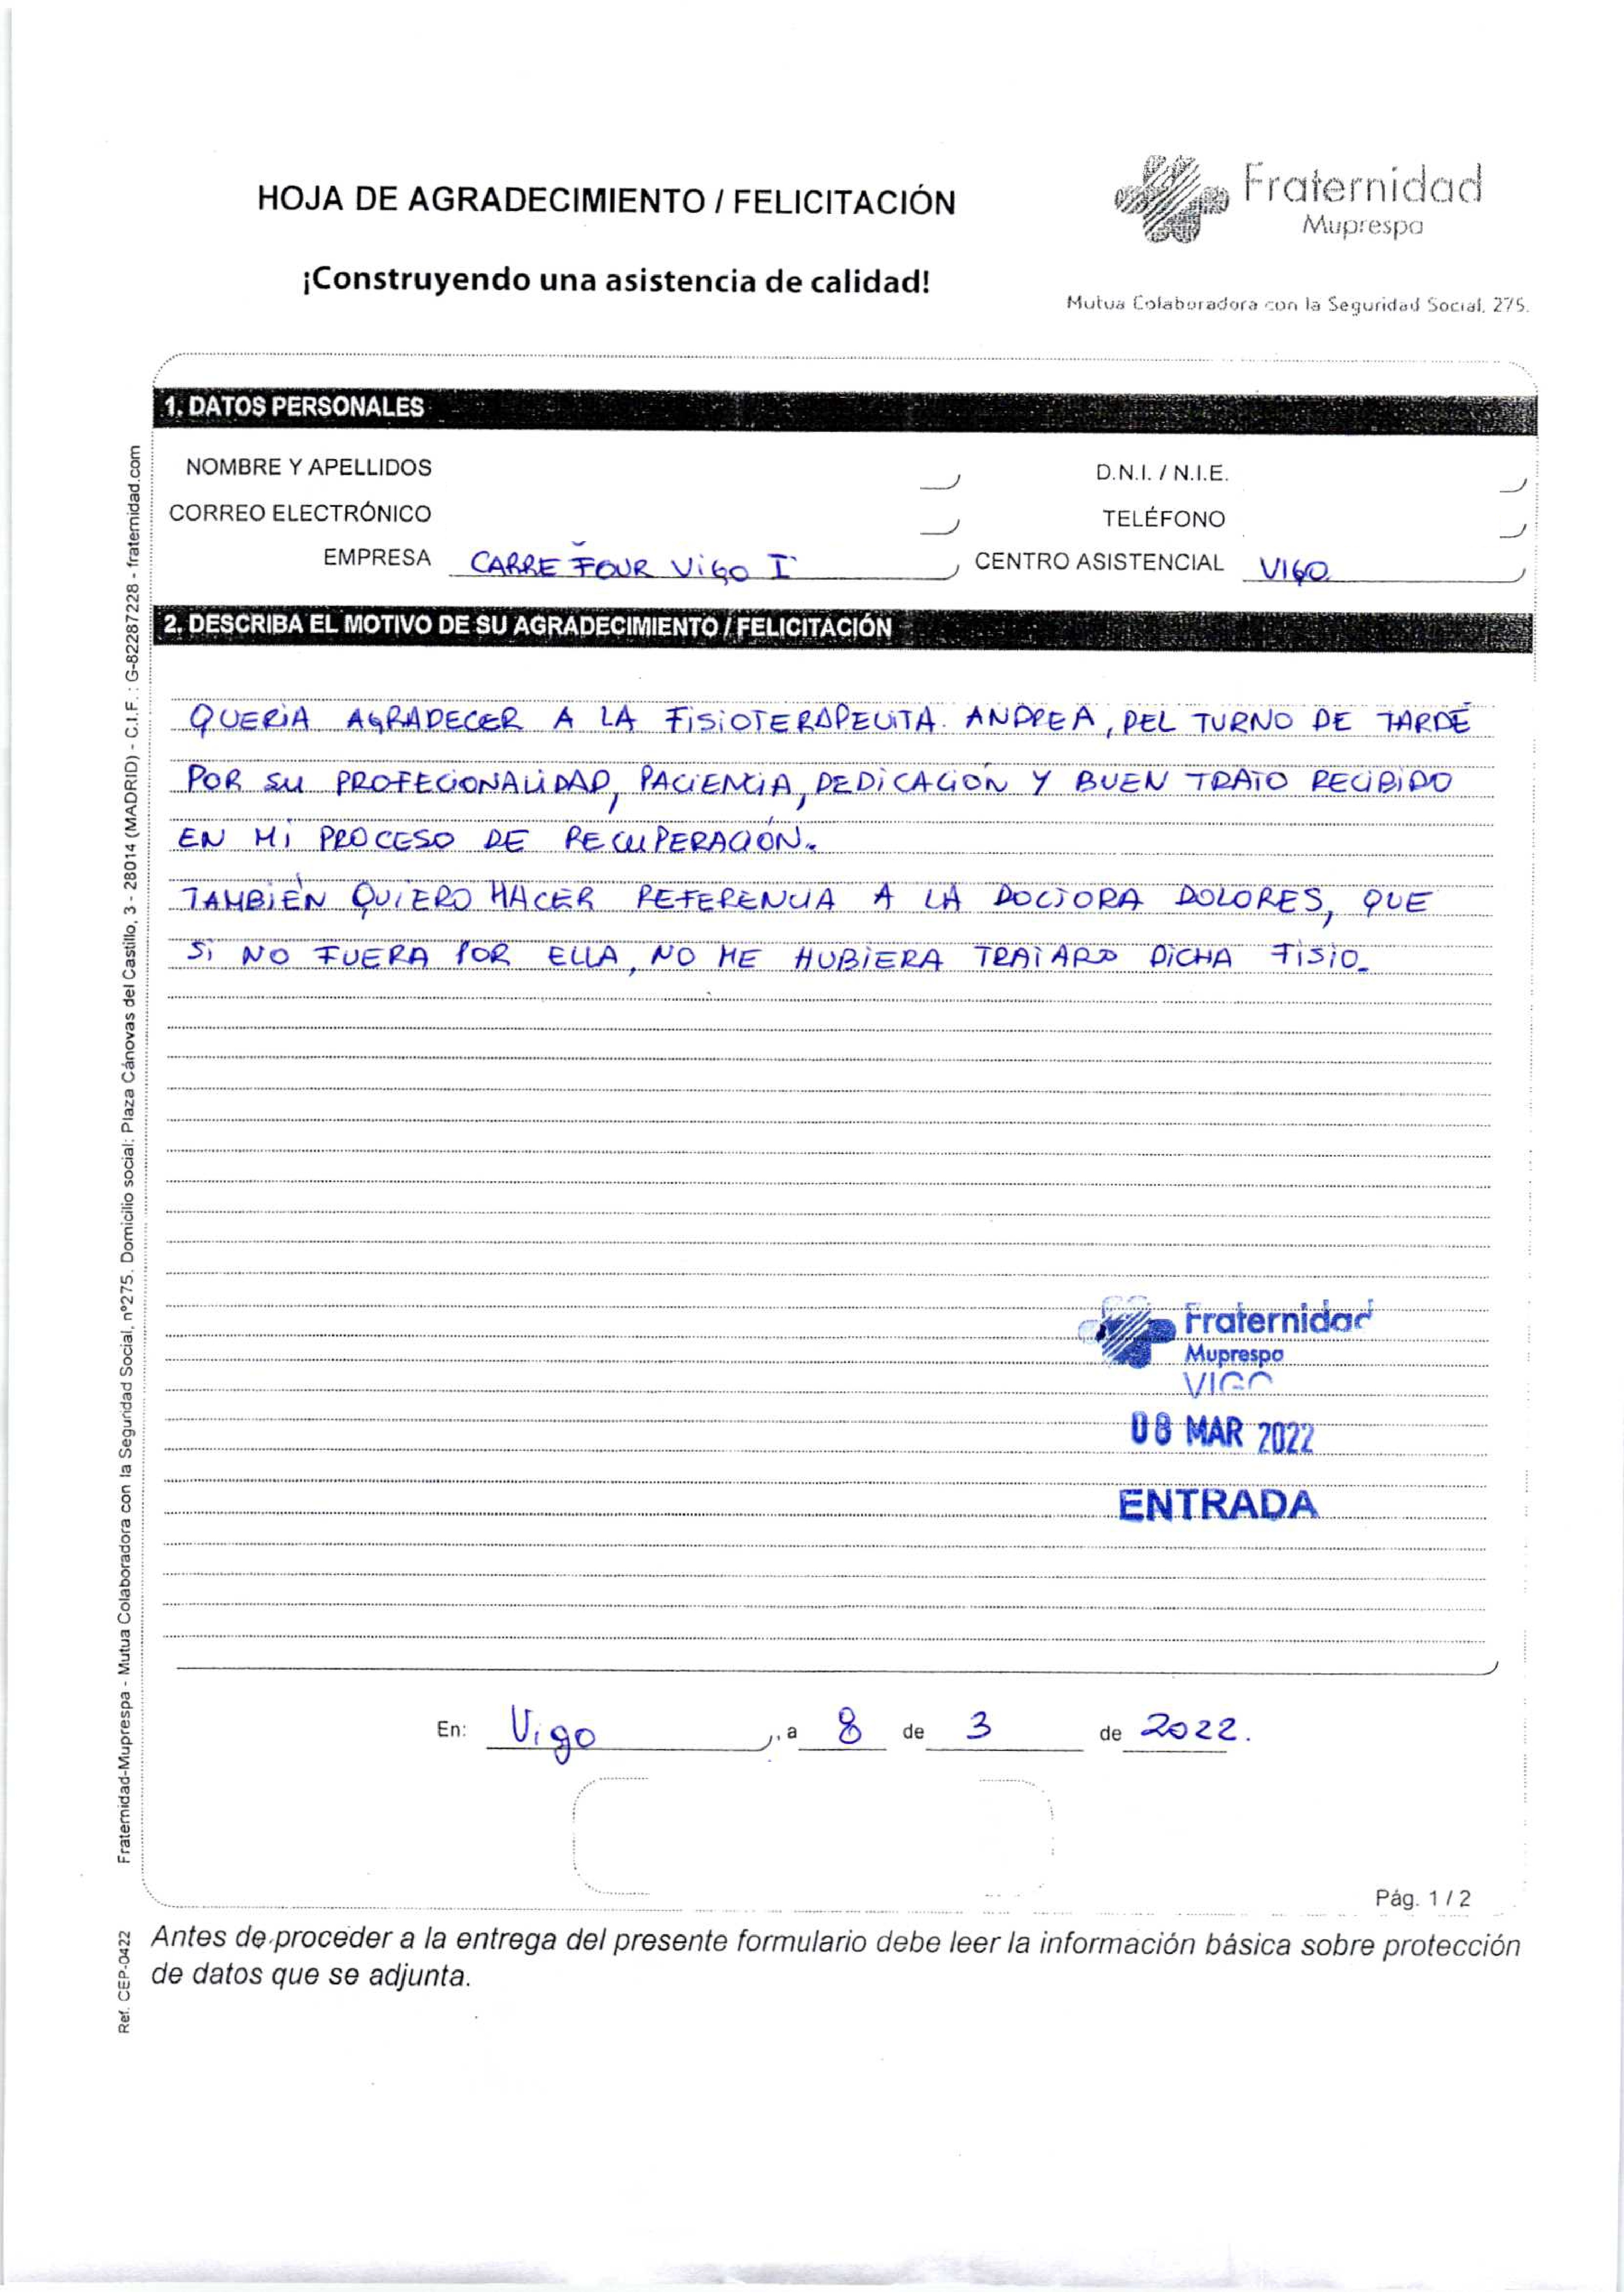 HOJA DE AGRADECIMIENTO / FELICITACIÓN
¡Construyendo una asistencia de calidad!
Fraternidad
Muprespa
Mutua Colaboradora con la Seguridad Social, 275.
1. DATOS PERSONALES
NOMBRE Y APELLIDOS
D.N.I. / N.I.E.
CORREO ELECTRÓNICO
TELÉFONO
EMPRESA CARREFOUR VIGO I
CENTRO ASISTENCIAL VIGO
2. DESCRIBA EL MOTIVO DE SU AGRADECIMIENTO / FELICITACIÓN
QUERIA AGRADECER A LA FISIOTERAPEUTA ANDREA, DEL TURNO DE TARDE
POR SU PROFECIONALIDAD, PACIENCIA, DEDICACIÓN Y BUEN TRATO RECIBIDO
EN MI PROCESO DE RECUPERACIÓN.
TAMBIÉN QUIERO HACER REFERENCIA A LA DOCTORA DOLORES, QUE
SI NO FUERA POR ELLA, NO ME HUBIERA TRATADO DICHA FISIO.
Fraternidad
Muprespa
VIGO
08 MAR 2022
ENTRADA
En: Vigo, a 8 de 3 de 2022.
Pág. 1 / 2
Antes de proceder a la entrega del presente formulario debe leer la información básica sobre protección
de datos que se adjunta.
Fraternidad-Muprespa - Mutua Colaboradora con la Seguridad Social, nº275. Domicilio social: Plaza Cánovas del Castillo, 3 - 28014 (MADRID) - C.I.F. : G-82287228 - fraternidad.com
Ref. CEP-0422